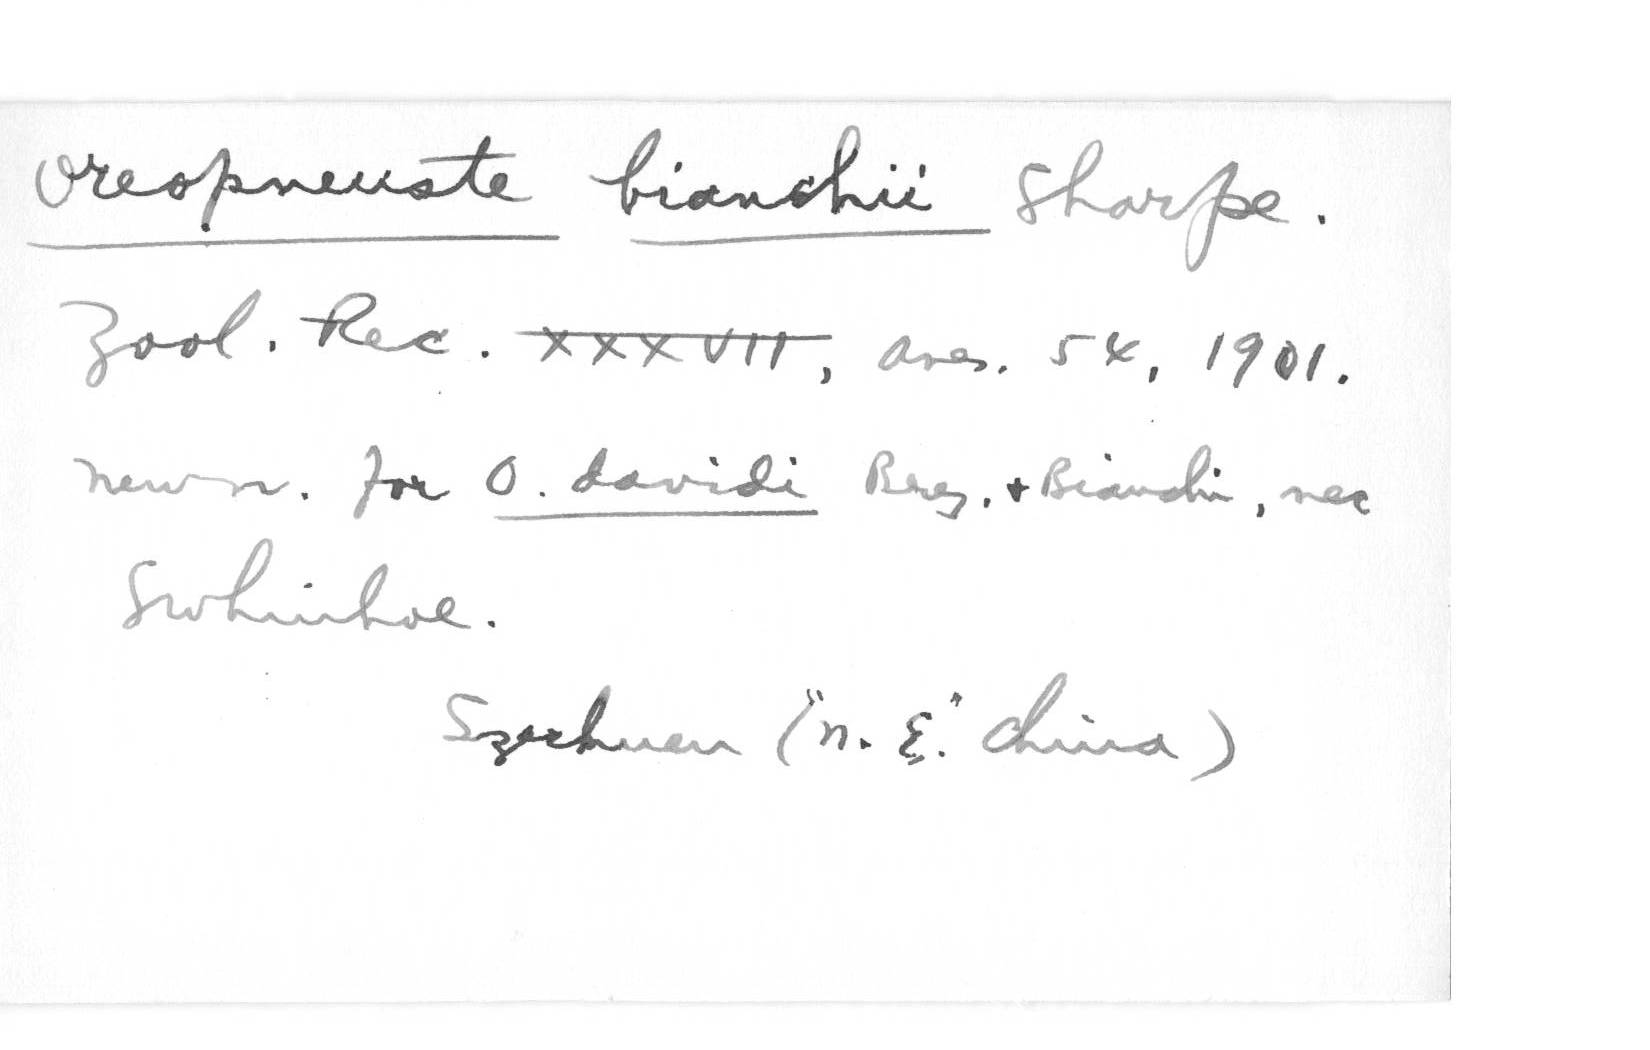 Oreopneuste bianchii Sharpe.
Zool. Rec. XXXVII, Aves. 54, 1901.
new n. for O. davidi Berez. + Bianchi, nec
Swhinhoe.
Szechuen ("N. E." China)